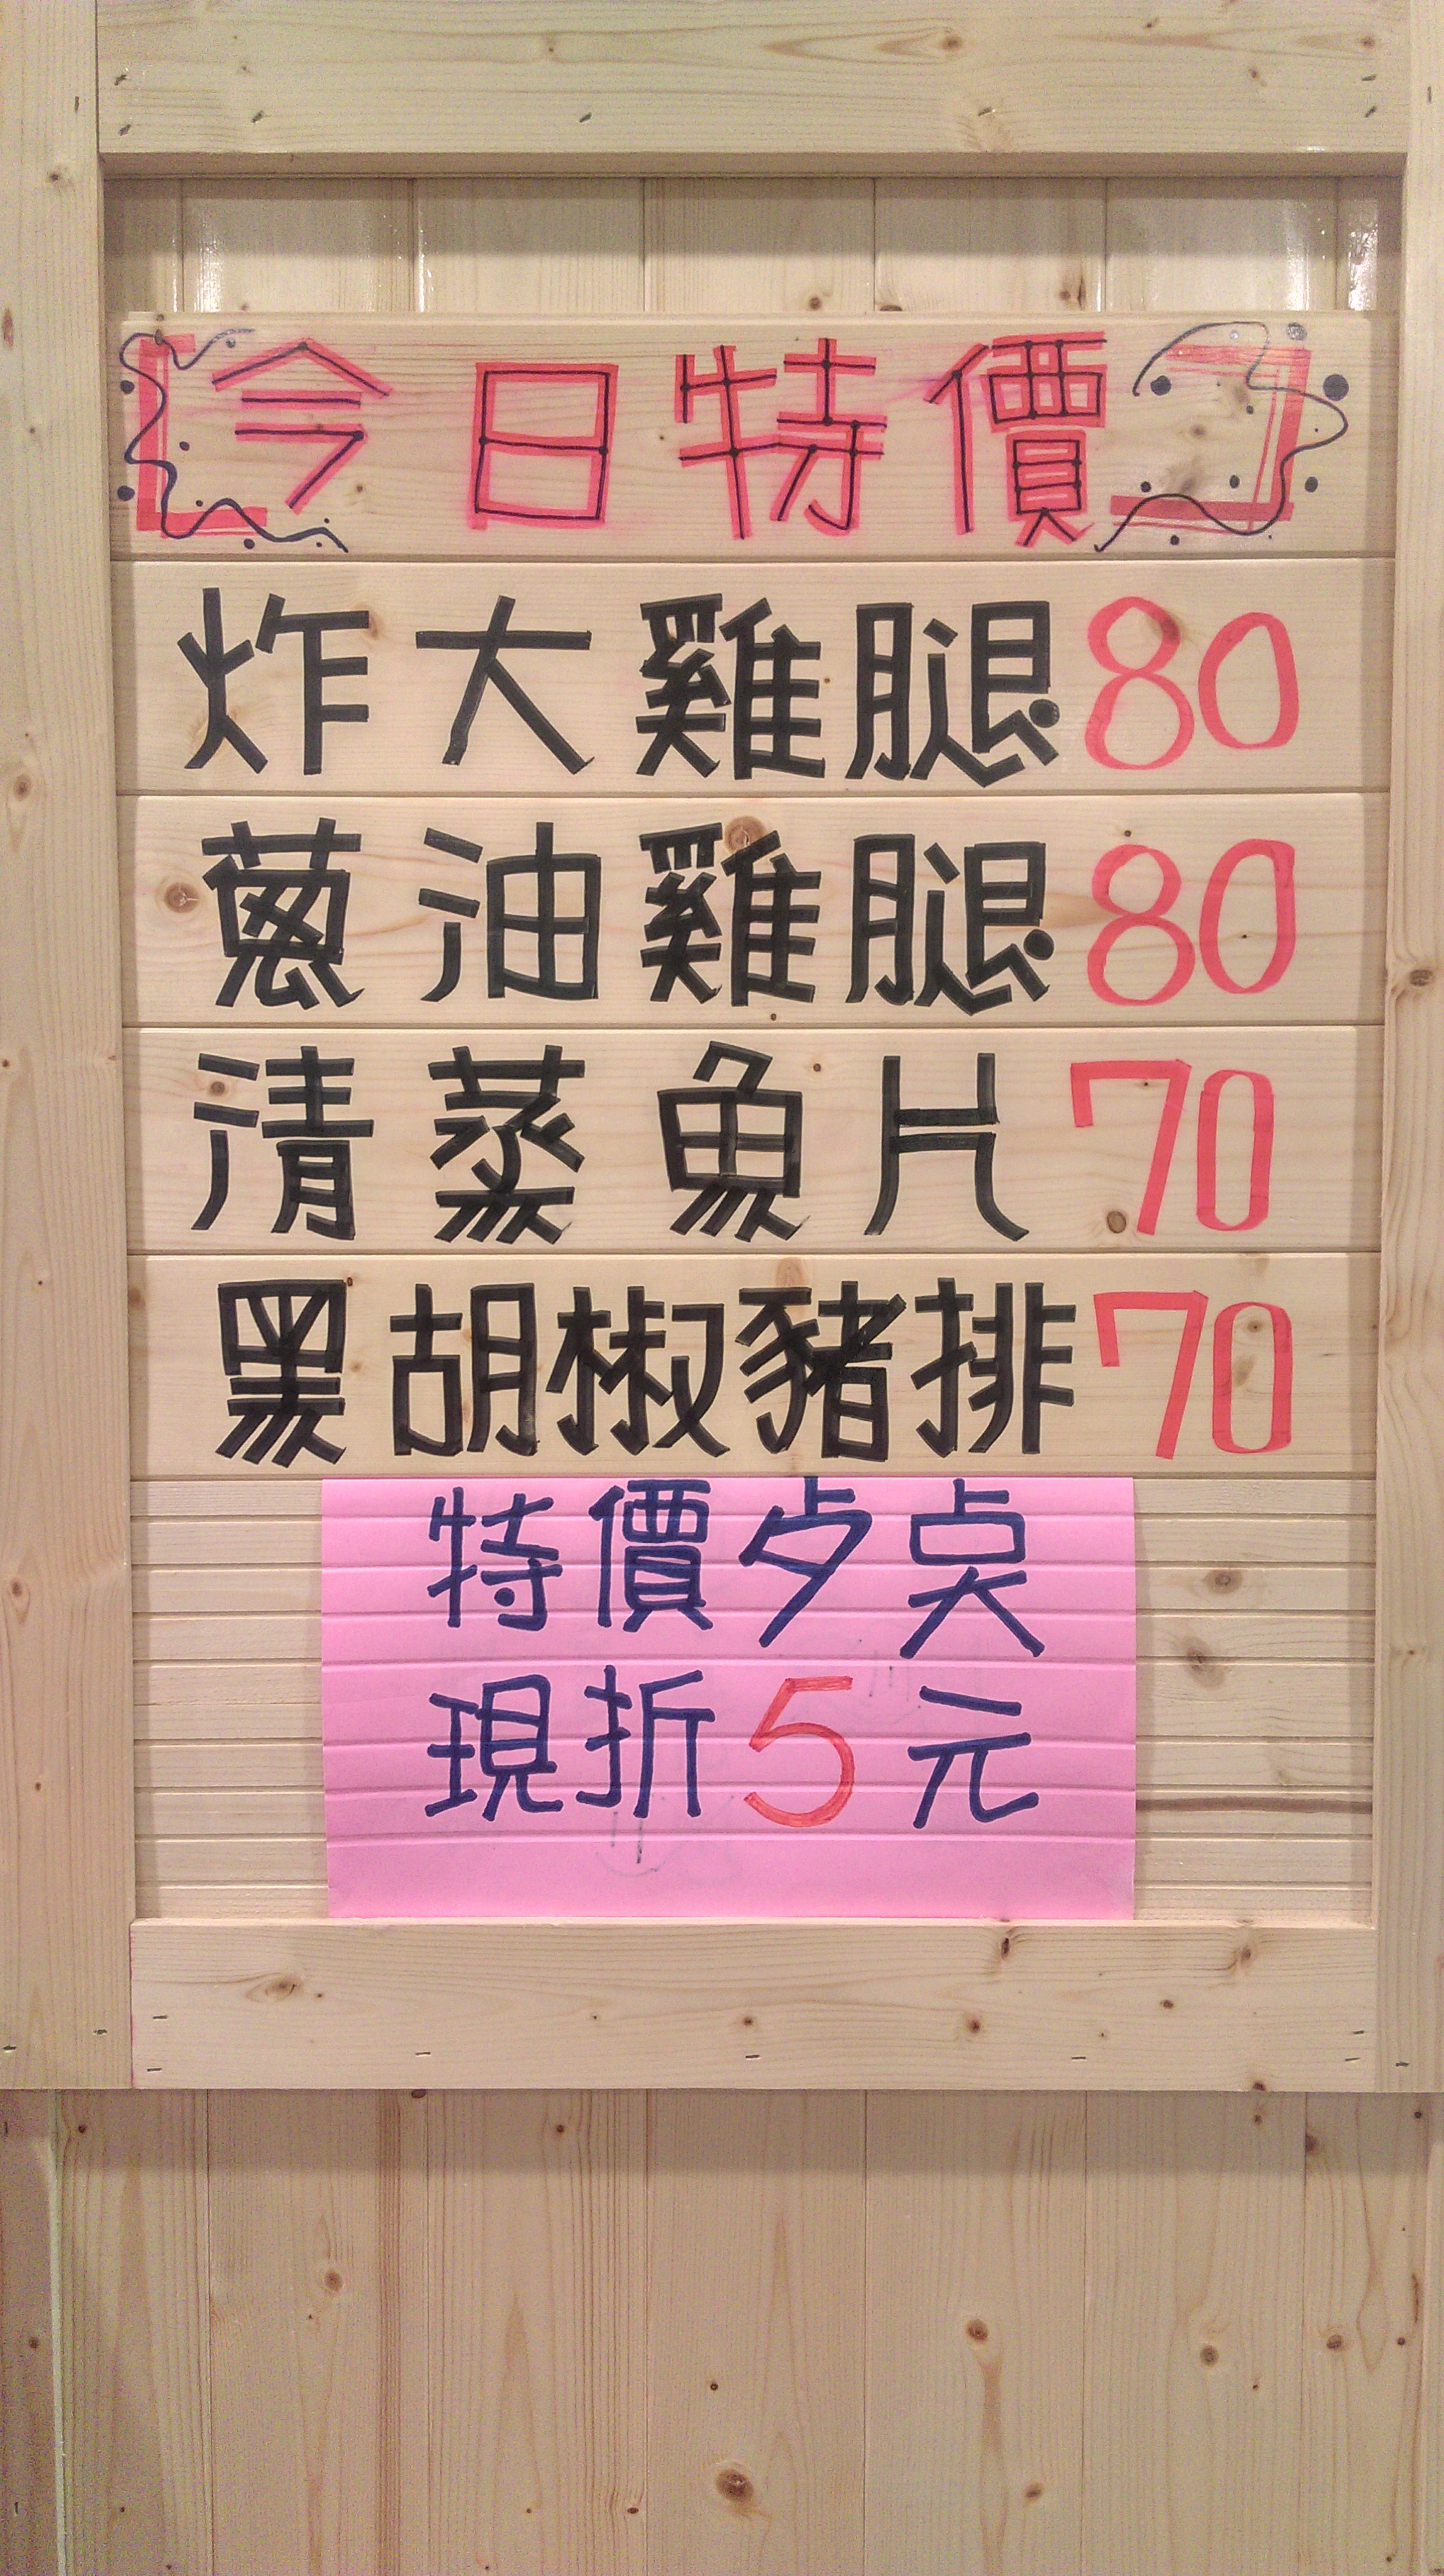 今日特價
炸大雞腿80
蔥油雞腿80
清蒸魚片70
黑胡椒豬排70
特價夕点
現折5元